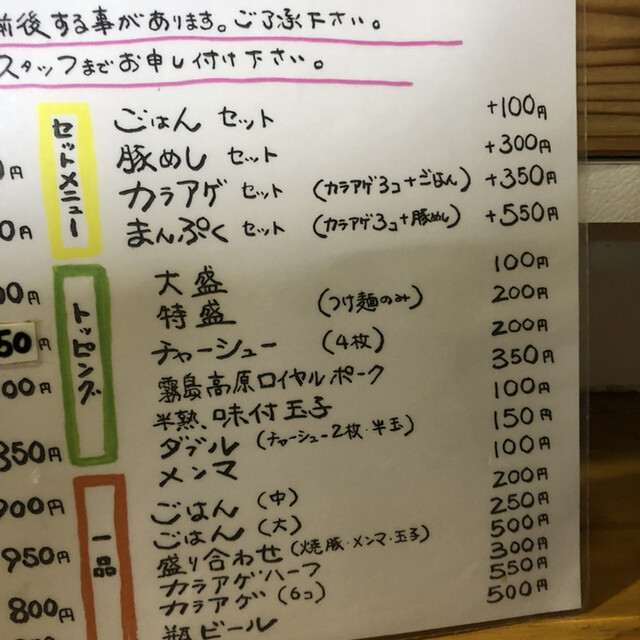 前後する事があります。ご了承下さい。
スタッフまでお申し付け下さい。
セットメニュー
ごはん セット +100円
豚めし セット +300円
カラアゲ セット (カラアゲ3コ+ごはん) +350円
まんぷく セット (カラアゲ3コ+豚めし) +550円
トッピング
大盛 100円
特盛 (つけ麺のみ) 200円
チャーシュー (4枚) 200円
霧島高原ロイヤルポーク 350円
半熟、味付玉子 100円
ダブル (チャーシュー2枚・半玉) 150円
メンマ 100円
一品
ごはん (中) 200円
ごはん (大) 250円
盛り合わせ (焼豚・メンマ・玉子) 500円
カラアゲハーフ 300円
カラアゲ (6コ) 550円
瓶ビール 500円
0円
00円
50円
00円
350円
900円
950円
800円